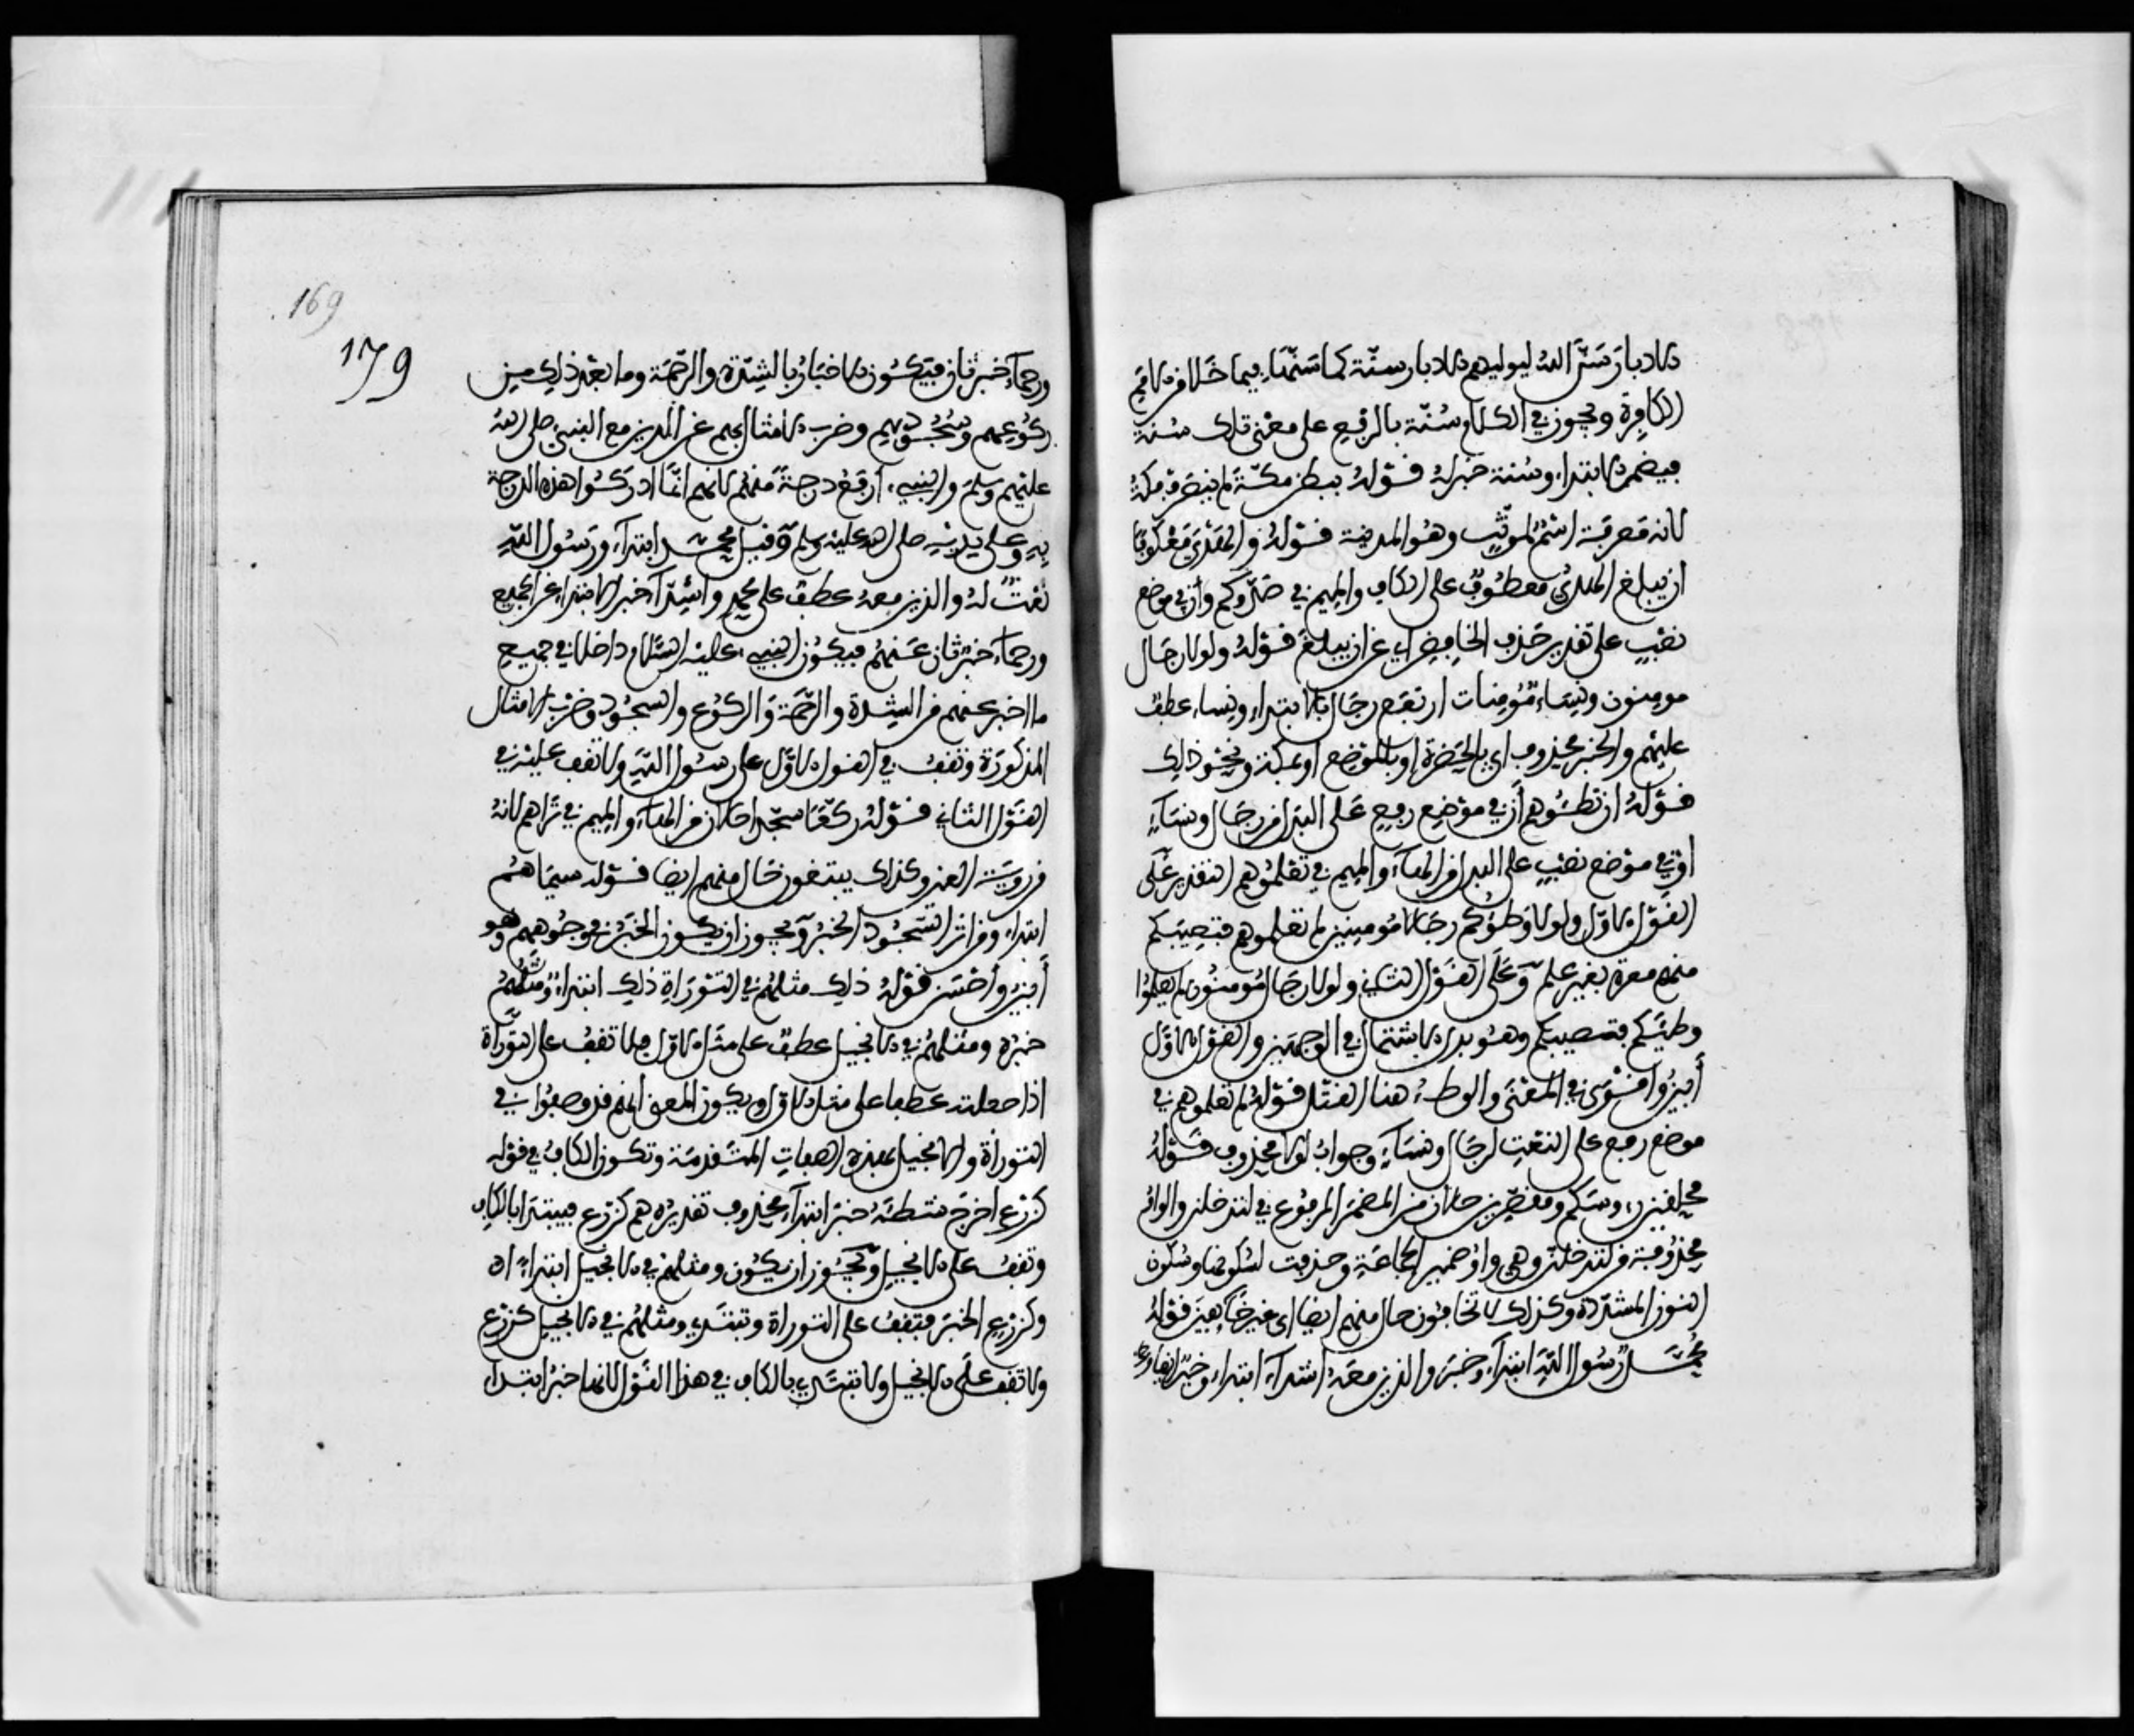 الادبار سَنَّ الله ليوليهم الادبار سنّة كما سَنّها فيما خَلا من الامم
الكافِرة ويجوز في الكلام سُنّة بالرفع على معنى تلك سُنة
فيضمر الابتداء وسُنة خبره قوله ببطن مكّةَ لم ينصرف مكة
لانه مَعرفة اسْمٌ لمونّثٍ وهُو المدينة قوله والهَدْيَ مَعْكوفا
ان يبلغ الهدي معطوف على الكاف والميم في صَدّوكم وأن في موضع
نصْبٍ على تقدير حَذف الخافِض اي عن ان يبلغَ قوله ولولا رجَال
مومنون ونِسَاء مُومِنات ارتفع رجَال بالابتداء ونِساء عطف
عليهم والخبر محذوف اي بالحَضرة او بالمَوضع او بمكة ونحْو ذلِك
قوله ان تطـُوهم أن في موْضع رفع عَلى البدل من رجَال ونسَاء
او في موْضع نصْبٍ على البدل من الهَاء والميم في تعْلمُوهم التقدير عَلى
القوْل الاوّل ولولا وَطؤكم رجَالا مُومِنين لم تعْلموهم فتصيبَكم
منهم معرة بغير علم وعَلى القوْل الثاني ولولا رجَال مُومنُون لم تعلمُوا
وطيَكم فتصيبكم وهُو بدل الاشتمال في الوجهَين والقوْل الاوّل
أبينُ واقْوَى في المعْنَى والوطء هنا القتْل قوْله لم تعلموهم في
موضع رفع على النعْتِ لرجَال ونسَاء وجواب لولا محذوف قوله
محلقين رءوسَكم ومقصّرين حالان من المضمَر المرفوع في لتدخلن والواو
محذوفة من لتدخلن وهي واو ضمير الجماعَة وحذفت لسُكونها وسُكون
النون المشدّدة وكذلك لا تخافون حال منهم ايضا اي غير خَايِفينَ قوله
مُحَمَّدٌ رَسُول اللهِ ابتداء وخبر والذين معَه اشداء ابتداء وخبر
ورحماءُ خبر ثان فيَكـُون الاخبَارُ بالشِدّة والرّحمَة وما بعْد ذلك من
ركُوعِهم وسُجُودِهم وضرب الامثال بهم عن الذين مع النبي صلى الله
عليهم وسلم والنبيءُ أرفع درجةً منهُم لانهم انّما ادركُوا هذه الدرجة
بهِ وعلى يديْهِ صلى الله عليه وسلم وقيل محمد ابتداء ورَسُول اللهِ
نعْتٌ لهُ والذين معهُ عطف على محمد واشِدّاء خبر الابتداء عن الجميع
ورحماءُ خبر ثان عَنهُم فيكـُون النبيءُ عليْه السّلام داخلا في جميع
ما اخبر عنهم من الشِّدة والرّحمَة وَالركُوع والسجُود وضرْب الامثال
المذكورَة وتقف في القول الاوّل على رسُول اللهِ ولا تقف عليْه في
القوْل الثاني قوله ركّعًا سجّدا حالان من الهَاء والميم في تراهم لانهُ
من رويَة العين وكذلك يبتغون حَال منهم ايضا قوله سِيمَاهُم
ابتداء ومن اثر السّجُود الخبرُ ويجوز ان يكون الخبَر في وجُوههم وهو
أبينُ وأحْسَن قوله ذلك مثلهُم في التوْرَاةِ ذلك ابتداء ومثَلهُم
خبرُه ومثلهُم في الانجيل عطف على مثل الاوّل فلا تقف على التوْرَاة
اذا جعلته عطفا على مثل الاوّل ويكون المعنى انهم قد وصفوا في
التوراة والانجيل بهذه الصفاتِ المتَقدّمَة وتكـون الكافُ في قوله
كزرْع اخرَج شطئَه خبَر ابتداء محذوف تقديره هم كزرْع فيبتدا بالكاف
وتقفُ عَلى الانجيل ويَجُوز ان يكـُون ومثلهُم في الانجيل ابتداء
وكزرْع الخبَر فتقف على التوراة وتبتَدي ومثلهُم في الانجيل كزرْع
ولا تقف عَلى الانجيل ولا تبتَدِي بالكاف في هذا القوْل لانها خبَرُ ابتداء
169
179